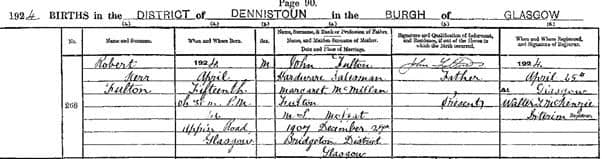 Page 90.
1924 BIRTHS in the DISTRICT of DENNISTOUN in the BURGH of GLASGOW
(1.) (2.) (3.) (4.) (5.) (6.)
No. Name and Surname. When and Where Born. Sex. Name, Surname, & Rank or Profession of Father. Name, and Maiden Surname of Mother. Date and Place of Marriage. Signature and Qualification of Informant, and Residence, if out of the House in which the Birth occurred. When and Where Registered, and Signature of Registrar.
268
Robert
Kerr
Fulton
1924
April
Fifteenth
P.M.
Appin Road
Glasgow
M
John Fulton
Hardware Salesman
Margaret McMillan
Fulton
M.S.
1907 December
Bridgeton District
Glasgow
John Fulton
Father
(Present)
1924
April 25th
At Glasgow
Walter McKenzie
Interim Registrar